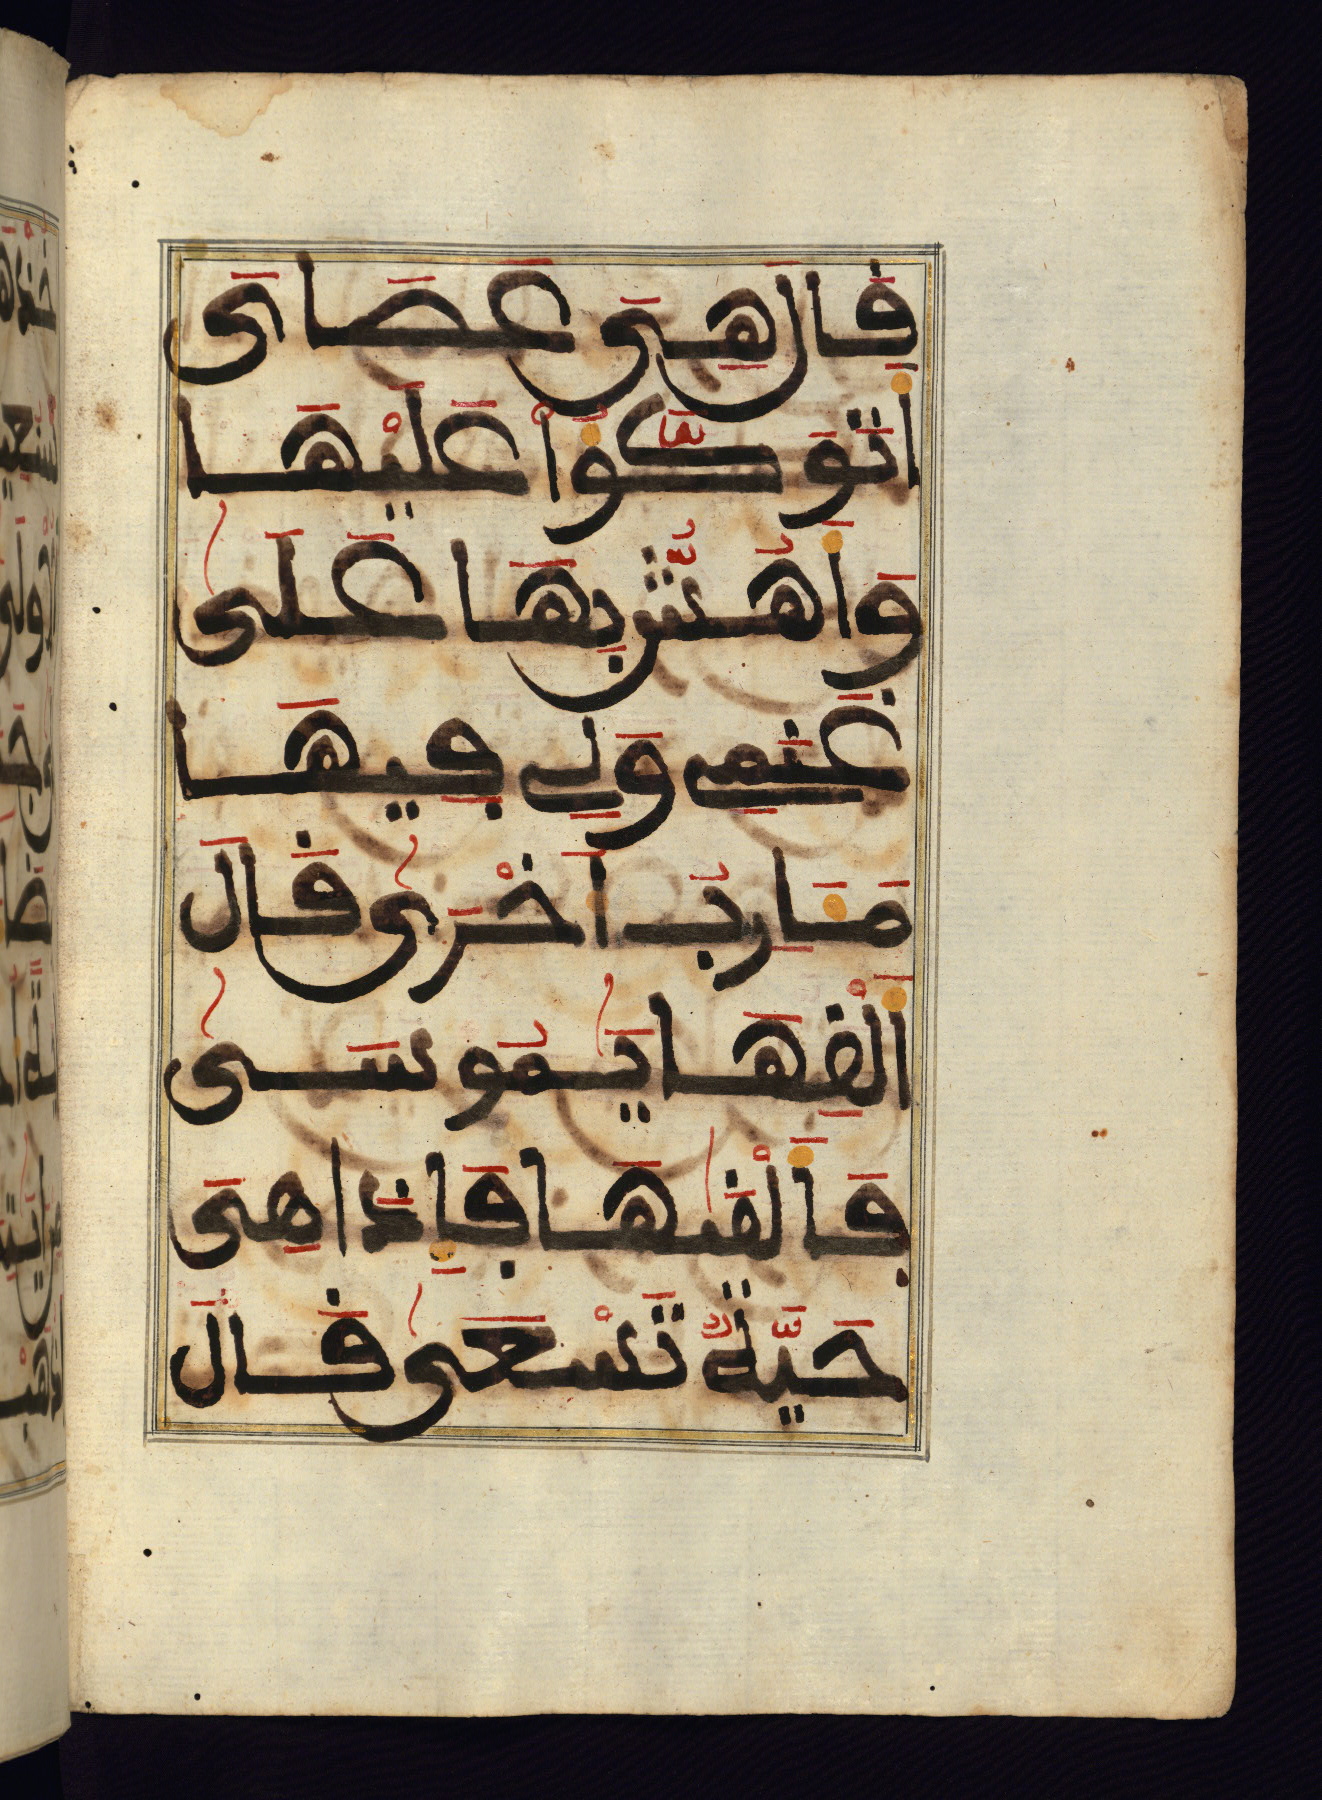 قَالَ هِيَ عَصَايَ
أَتَوَكَّؤُا عَلَيْهَا
وَأَهُشُّ بِهَا عَلَى
غَنَمِي وَلِي فِيهَا
مَـَٔارِبُ أُخْرَى قَالَ
أَلْقِهَا يَمُوسَى
فَأَلْقَىهَا فَإِذَا هِيَ
حَيَّةٌ تَسْعَى قَالَ